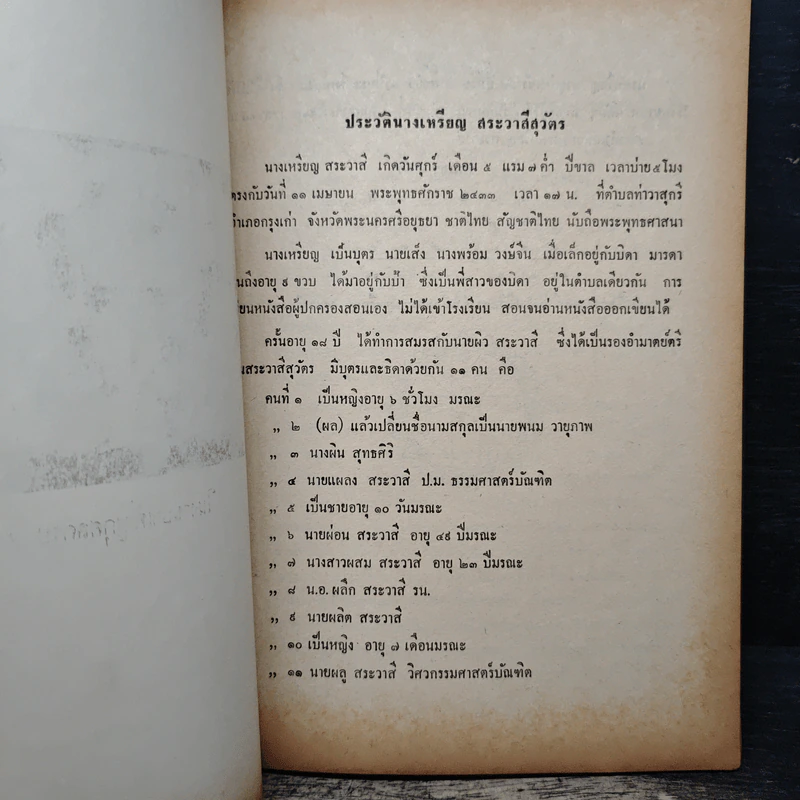 ประวัตินางเหรียญ สระวาสีสุวัตร
นางเหรียญ สระวาสี เกิดวันศุกร์ เดือน ๕ แรม ๗ ค่ำ ปีขาล เวลาบ่าย ๕ โมง
ตรงกับวันที่ ๑๑ เมษายน พระพุทธศักราช ๒๔๓๓ เวลา ๑๗ น. ที่ตำบลท่าวาสุกรี
อำเภอกรุงเก่า จังหวัดพระนครศรีอยุธยา ชาติไทย สัญชาติไทย นับถือพระพุทธศาสนา
นางเหรียญ เป็นบุตร นายเส็ง นางพร้อม วงษ์จีน เมื่อเล็กอยู่กับบิดา มารดา
นถึงอายุ ๙ ขวบ ได้มาอยู่กับป้า ซึ่งเป็นพี่สาวของบิดา อยู่ในตำบลเดียวกัน การ
ียนหนังสือผู้ปกครองสอนเอง ไม่ได้เข้าโรงเรียน สอนจนอ่านหนังสือออกเขียนได้
ครั้นอายุ ๑๘ ปี ได้ทำการสมรสกับนายผิว สระวาสี ซึ่งได้เป็นรองอำมาตย์ตรี
นสระวาสีสุวัตร มีบุตรและธิดาด้วยกัน ๑๑ คน คือ
คนที่ ๑ เป็นหญิงอายุ ๖ ชั่วโมง มรณะ
,, ๒ (ผล) แล้วเปลี่ยนชื่อนามสกุลเป็นนายพนม วายุภาพ
,, ๓ นางผิน สุทธศิริ
,, ๔ นายแผลง สระวาสี ป.ม. ธรรมศาสตร์บัณฑิต
,, ๕ เป็นชายอายุ ๑๐ วันมรณะ
,, ๖ นายผ่อน สระวาสี อายุ ๔๙ ปีมรณะ
,, ๗ นางสาวผสม สระวาสี อายุ ๒๓ ปีมรณะ
,, ๘ น.อ. ผลึก สระวาสี รน.
,, ๙ นายผลิต สระวาสี
,, ๑๐ เป็นหญิง อายุ ๗ เดือนมรณะ
,, ๑๑ นายผลู สระวาสี วิศวกรรมศาสตร์บัณฑิต